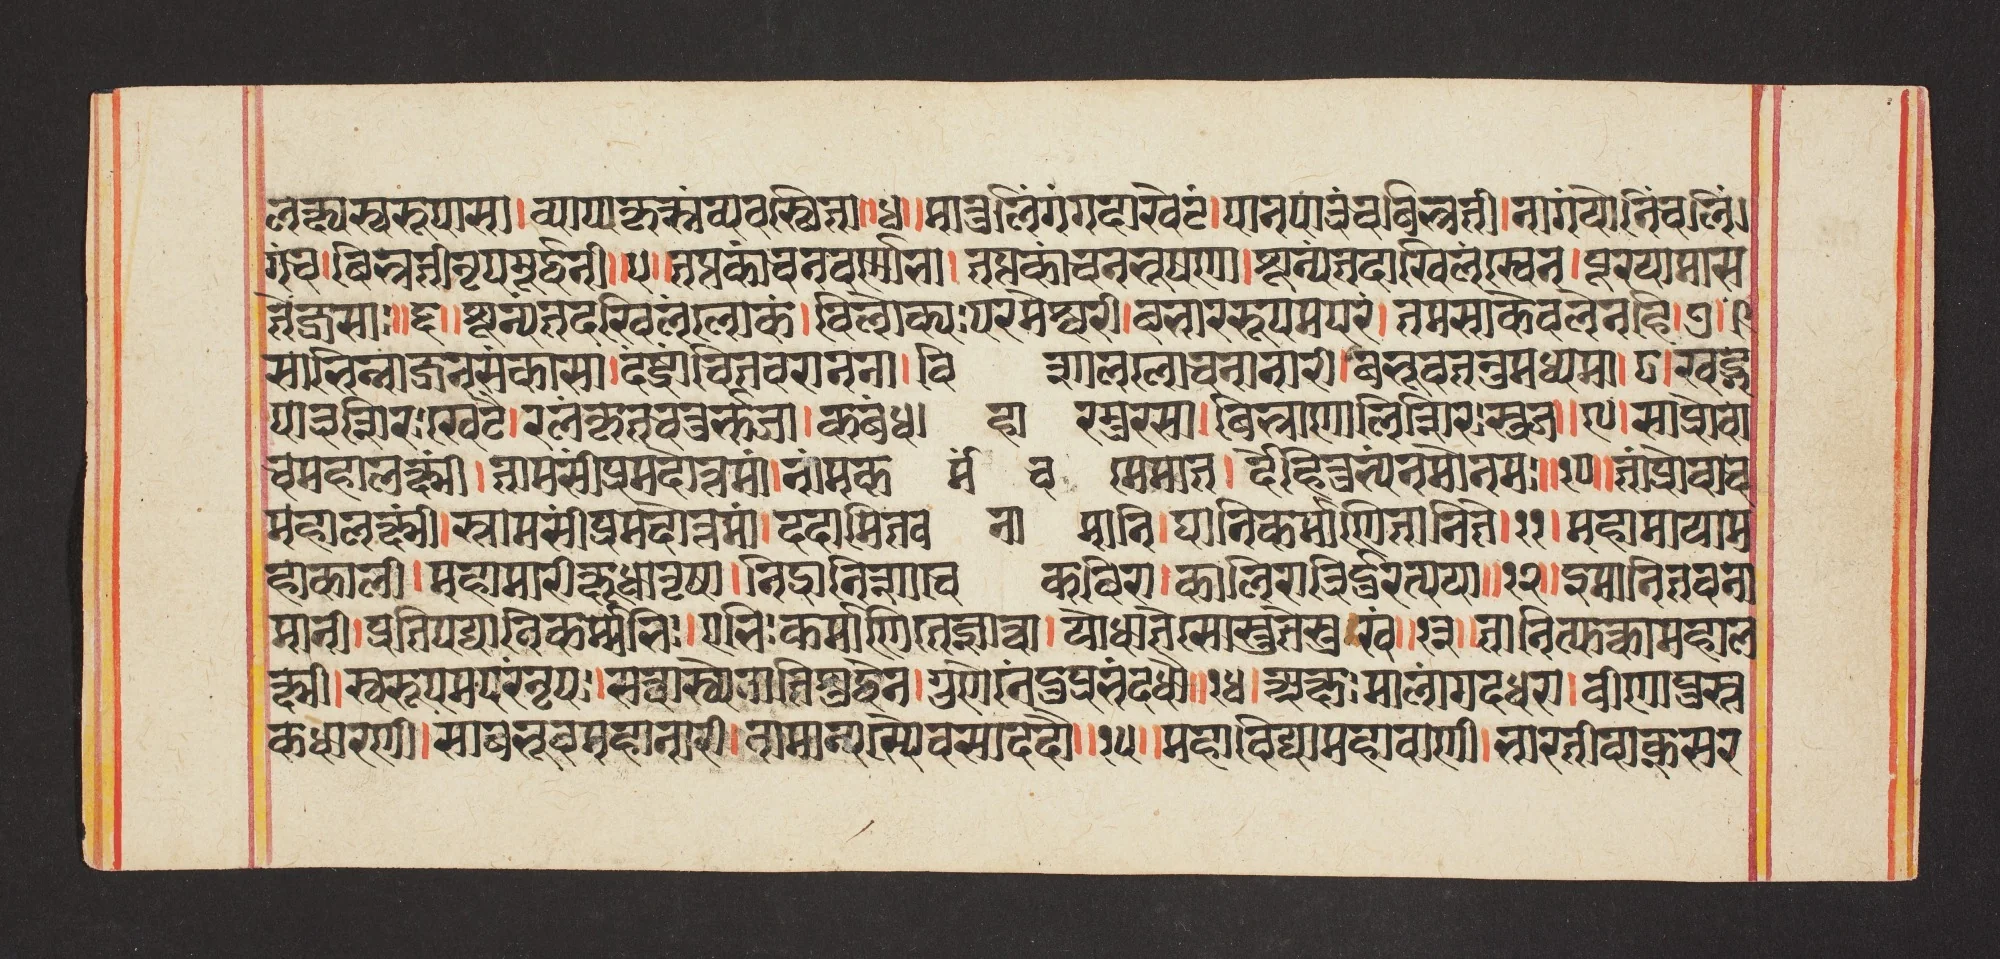 लक्ष्यस्वरूपासा। व्याप्यकृत्स्नंव्यवस्थिता॥४॥मातुलिंगंगदाखेटं।पानपात्रंचबिभ्रती।नागंयोनिंचलिं।
गंच।बिभ्रतीनृपमूर्द्धनी॥५॥तप्तकांचनवर्णाभा।तप्तकांचनभूषणा।शून्यंतदाखिलंस्वेन।पूरयामास
तेजसाः॥६॥शून्यंतदखिलंलोकं।विलोक्यःपरमेश्वरी।बभाररूपमपरं।तमसाकेवलेनहि।७॥
साभिन्नांजनसंकासा।दंष्ट्रांचितवरानना।वि शाललोचनानारी।बभूवतनुमध्यमा।८।खड्ग
पात्रशिरःखेटै।रलंकृतचतुर्भुजा।कबंध। हा रमुरसा।बिभ्राणाशिरःस्रज॥९।साप्रोवा
चमहालक्ष्मीं।तामसीप्रमदोत्तमां।नामक र्म च मेमात।र्देहितुभ्यंनमोनमः॥१०॥तांप्रोवाच
महालक्ष्मीं।स्तामसींप्रमदोत्तमां।ददामितव ना मानि।यानिकर्माणितानिते।११।महामायाम
हाकाली।महामारीक्षुधातृषा।निद्रातृष्णाच कविरा।कालिरात्रिर्दुरत्यया॥१२॥इमानितवना
मानी।प्रतिपद्यानिकर्मभिः।एभिःकर्माणितेज्ञात्वा।योधीतेसोस्नुतेसुखं॥१३॥तामित्युक्त्वामहाल
क्ष्मी।स्वरूपमपरंनृपः।सत्वाख्येनातिशुद्धेन।गुणेनेंदुप्रभंदधौ॥१४।अक्षःमालांगदधरा।वीणापुस्त
कधारणी।साबभूवमहानारी।नामान्यस्यैचसाददौ॥१५॥महाविद्यामहावाणी।भारतीवाक्सर